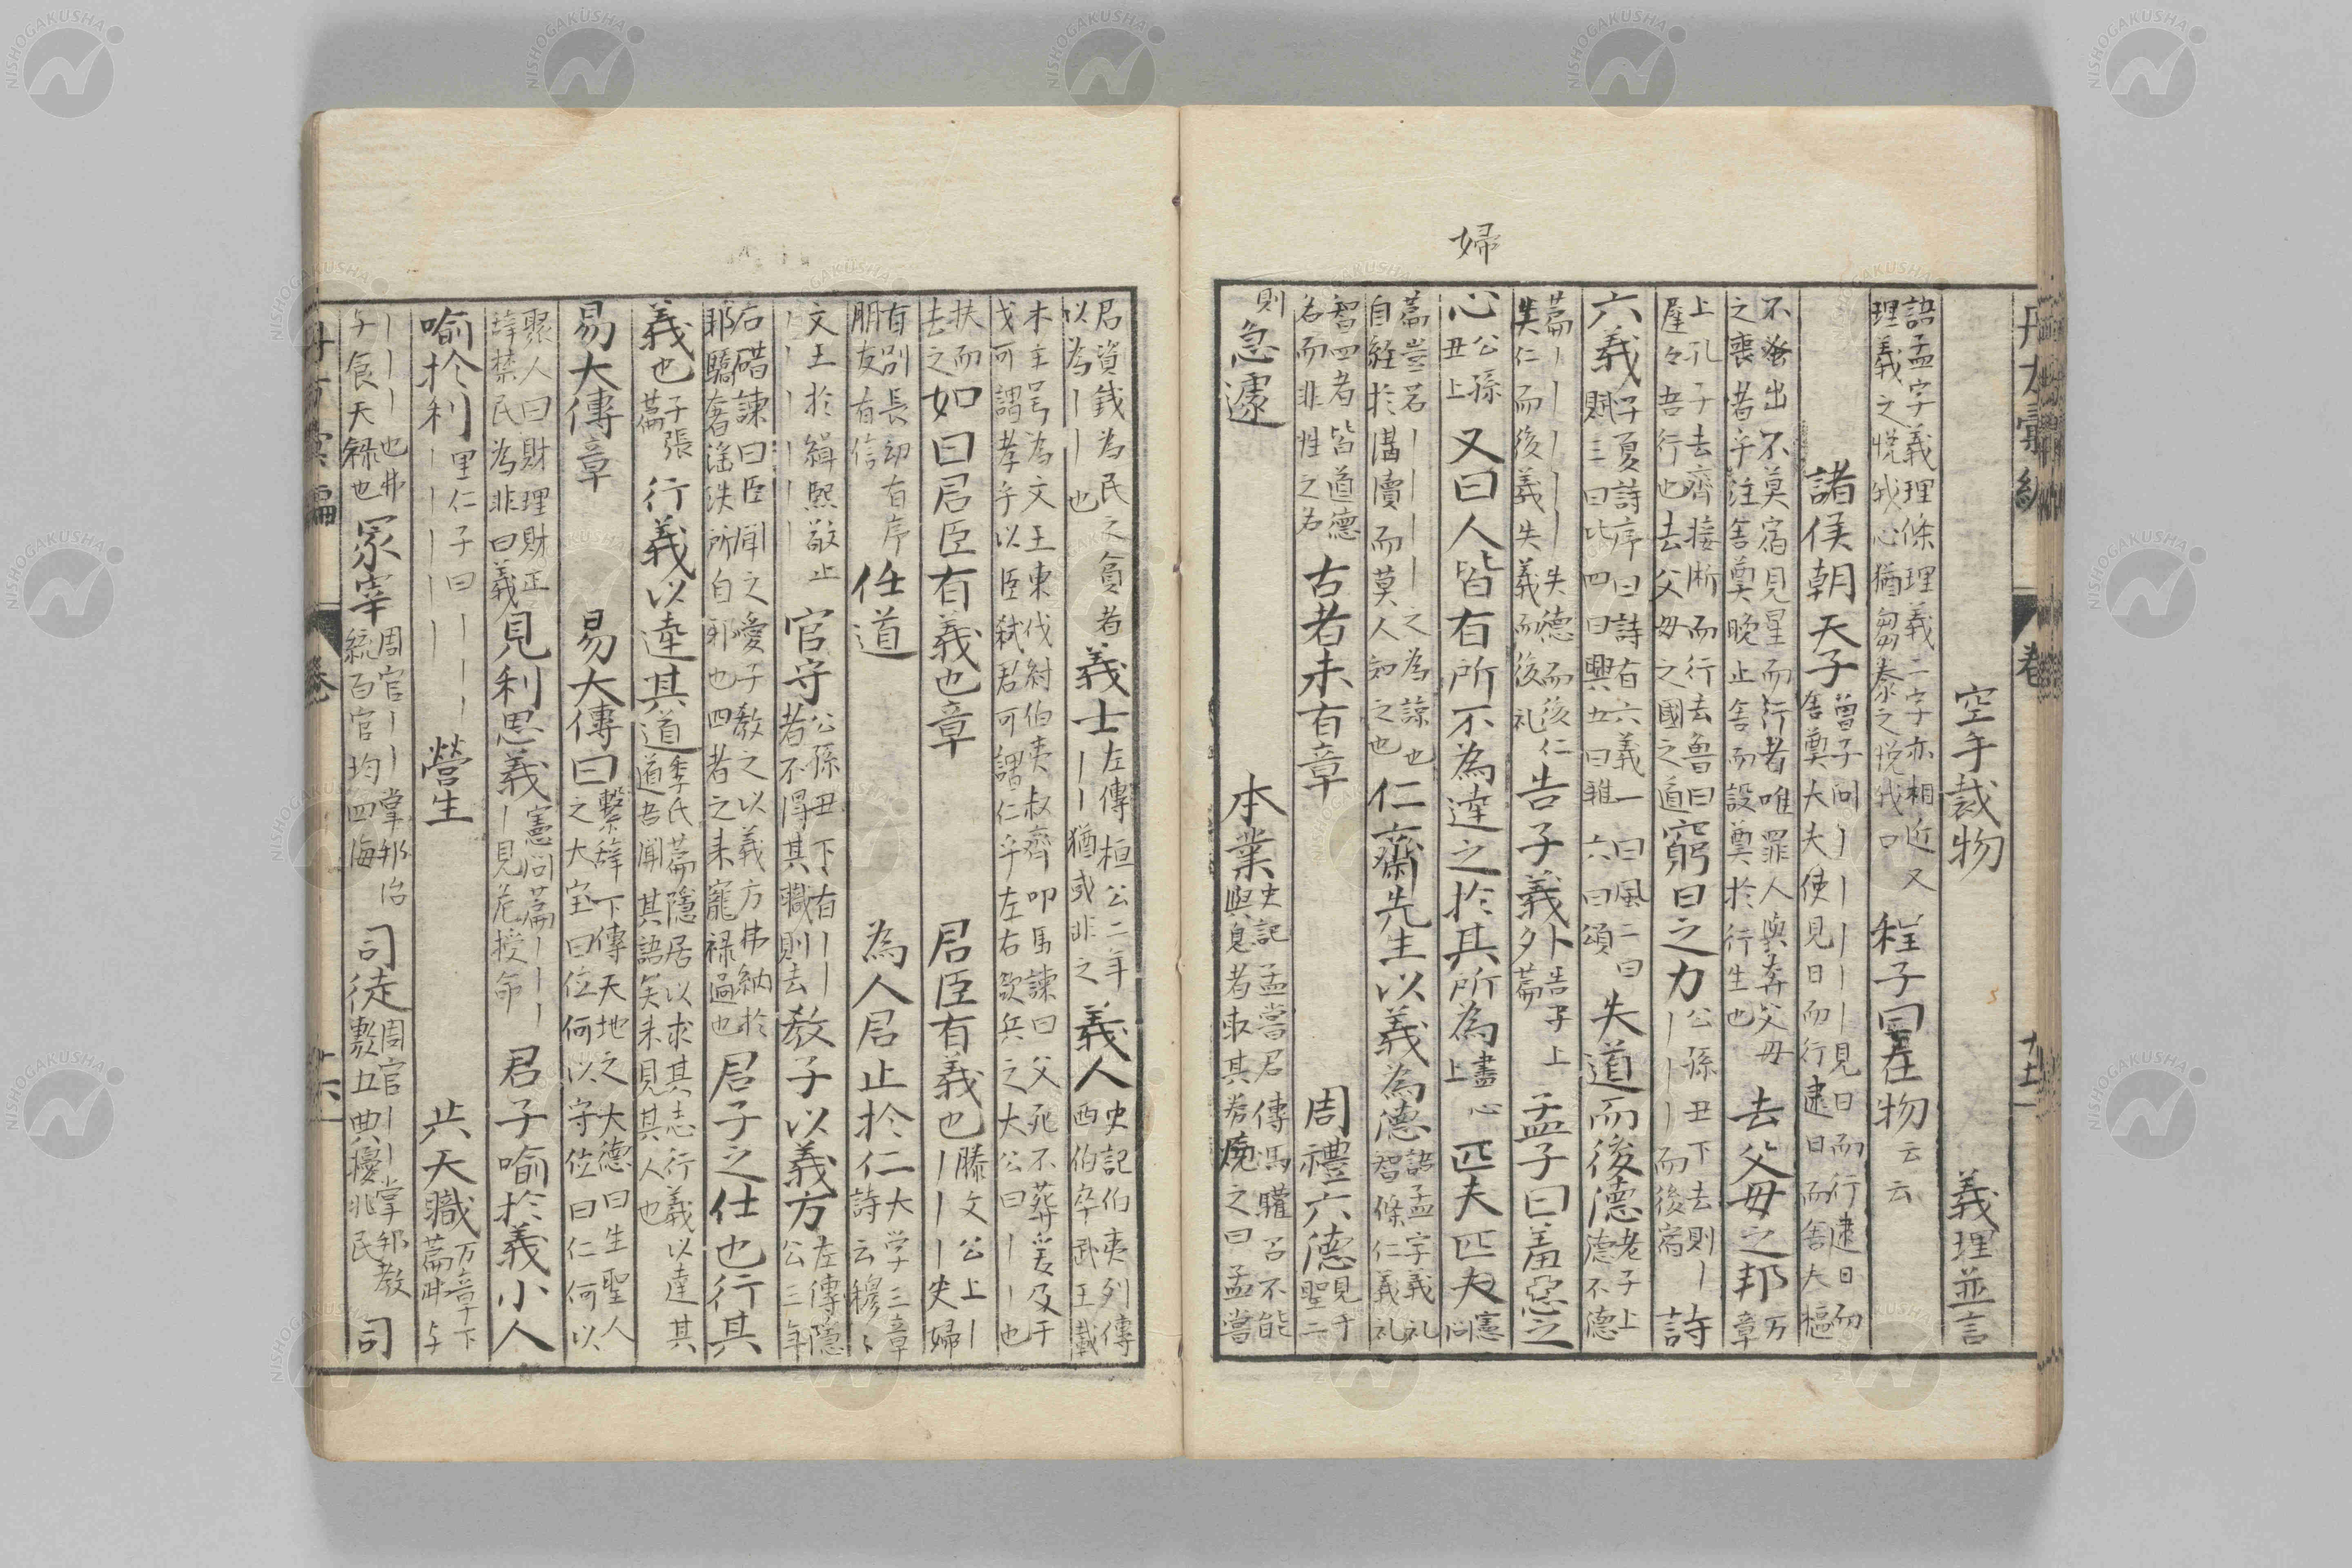 婦
空手裁物　義理並言
語孟字義理條理義二字亦相近又
理義之悦我心猶芻豢之悦我口
程子曰在物云云
諸侯朝天子
曾子問｜｜｜｜｜見日而行逮日而
舍奠大夫使見日而行逮日而舍夫柩
不蚤出不莫宿見星而行者唯罪人與奔父母
之喪者乎注舍奠晚止舍而設奠於行主也
去父母之邦
万章
上孔子去齊接淅而行去魯曰
遲々吾行也去父母之國之道
窮日之力
公孫丑下去則｜
｜｜｜｜而後宿
詩
六義
子夏詩序曰詩有六義一曰風二曰
賦三曰比四曰興五曰雅六曰頌
失道而後德
老子上
德不德
篇｜｜｜｜｜失德而後仁
失仁而後義失義而後礼
告子義外
告子上
篇
孟子曰羞惡之
心
公孫
丑上
又曰人皆有所不為達之於其所為
盡心
上
匹夫匹夫
憲
問
篇豈若｜｜｜｜之為諒也
自經於溝瀆而莫人知之也
仁齋先生以義為德
語孟字義礼
智條仁義礼
智四者皆道德
名而非性之名
古者未有章　周禮六德
見于
聖二
則急遽　本業
史記孟嘗君傳馮驩召不能
與息者取其券燒之曰孟嘗
君資錢為民之貟者
以為｜｜也
義士
左傳桓公二年
｜｜猶或非之
義人
史記伯夷列傳
西伯卒武王載
木主号為文王東伐紂伯夷叔齊叩馬諫曰父死不葬爰及干
戈可謂孝乎以臣弑君可謂仁乎左右欲兵之太公曰｜｜也
扶而
去之
如曰君臣有義也章　君臣有義也
滕文公上｜
｜｜｜夫婦
有別長幼有序
朋友有信
任道　為人君止於仁
大学三章
詩云穆〻
文王於緝熙敬止
｜｜｜｜｜｜
官守
公孫丑下有｜｜
者不得其職則去
教子以義方
左傳隱
公三年
石碏諫曰臣聞之愛子教之以義方弗納於
邪驕奢淫泆所自邪也四者之来寵禄過也
君子之仕也行其
義也
子張
篇
行義以達其道
季氏篇隱居以求其志行義以達其
道吾聞其語矣未見其人也
易大傳章　易大傳曰
繫辞下傳天地之大德曰生聖人
之大宝曰位何以守位曰仁何以
聚人曰財理財正
辞禁民為非曰義
見利思義
憲問篇｜｜｜
｜見危授命
君子喻於義小人
喻於利
里仁子曰｜｜｜
｜｜｜｜｜
營生　共天職
万章下
篇弗与
｜｜｜也弗
与食天禄也
冢宰
周官｜｜掌邦治
統百官均四海
司徒
周官｜｜掌邦教
敷五典擾兆民
司